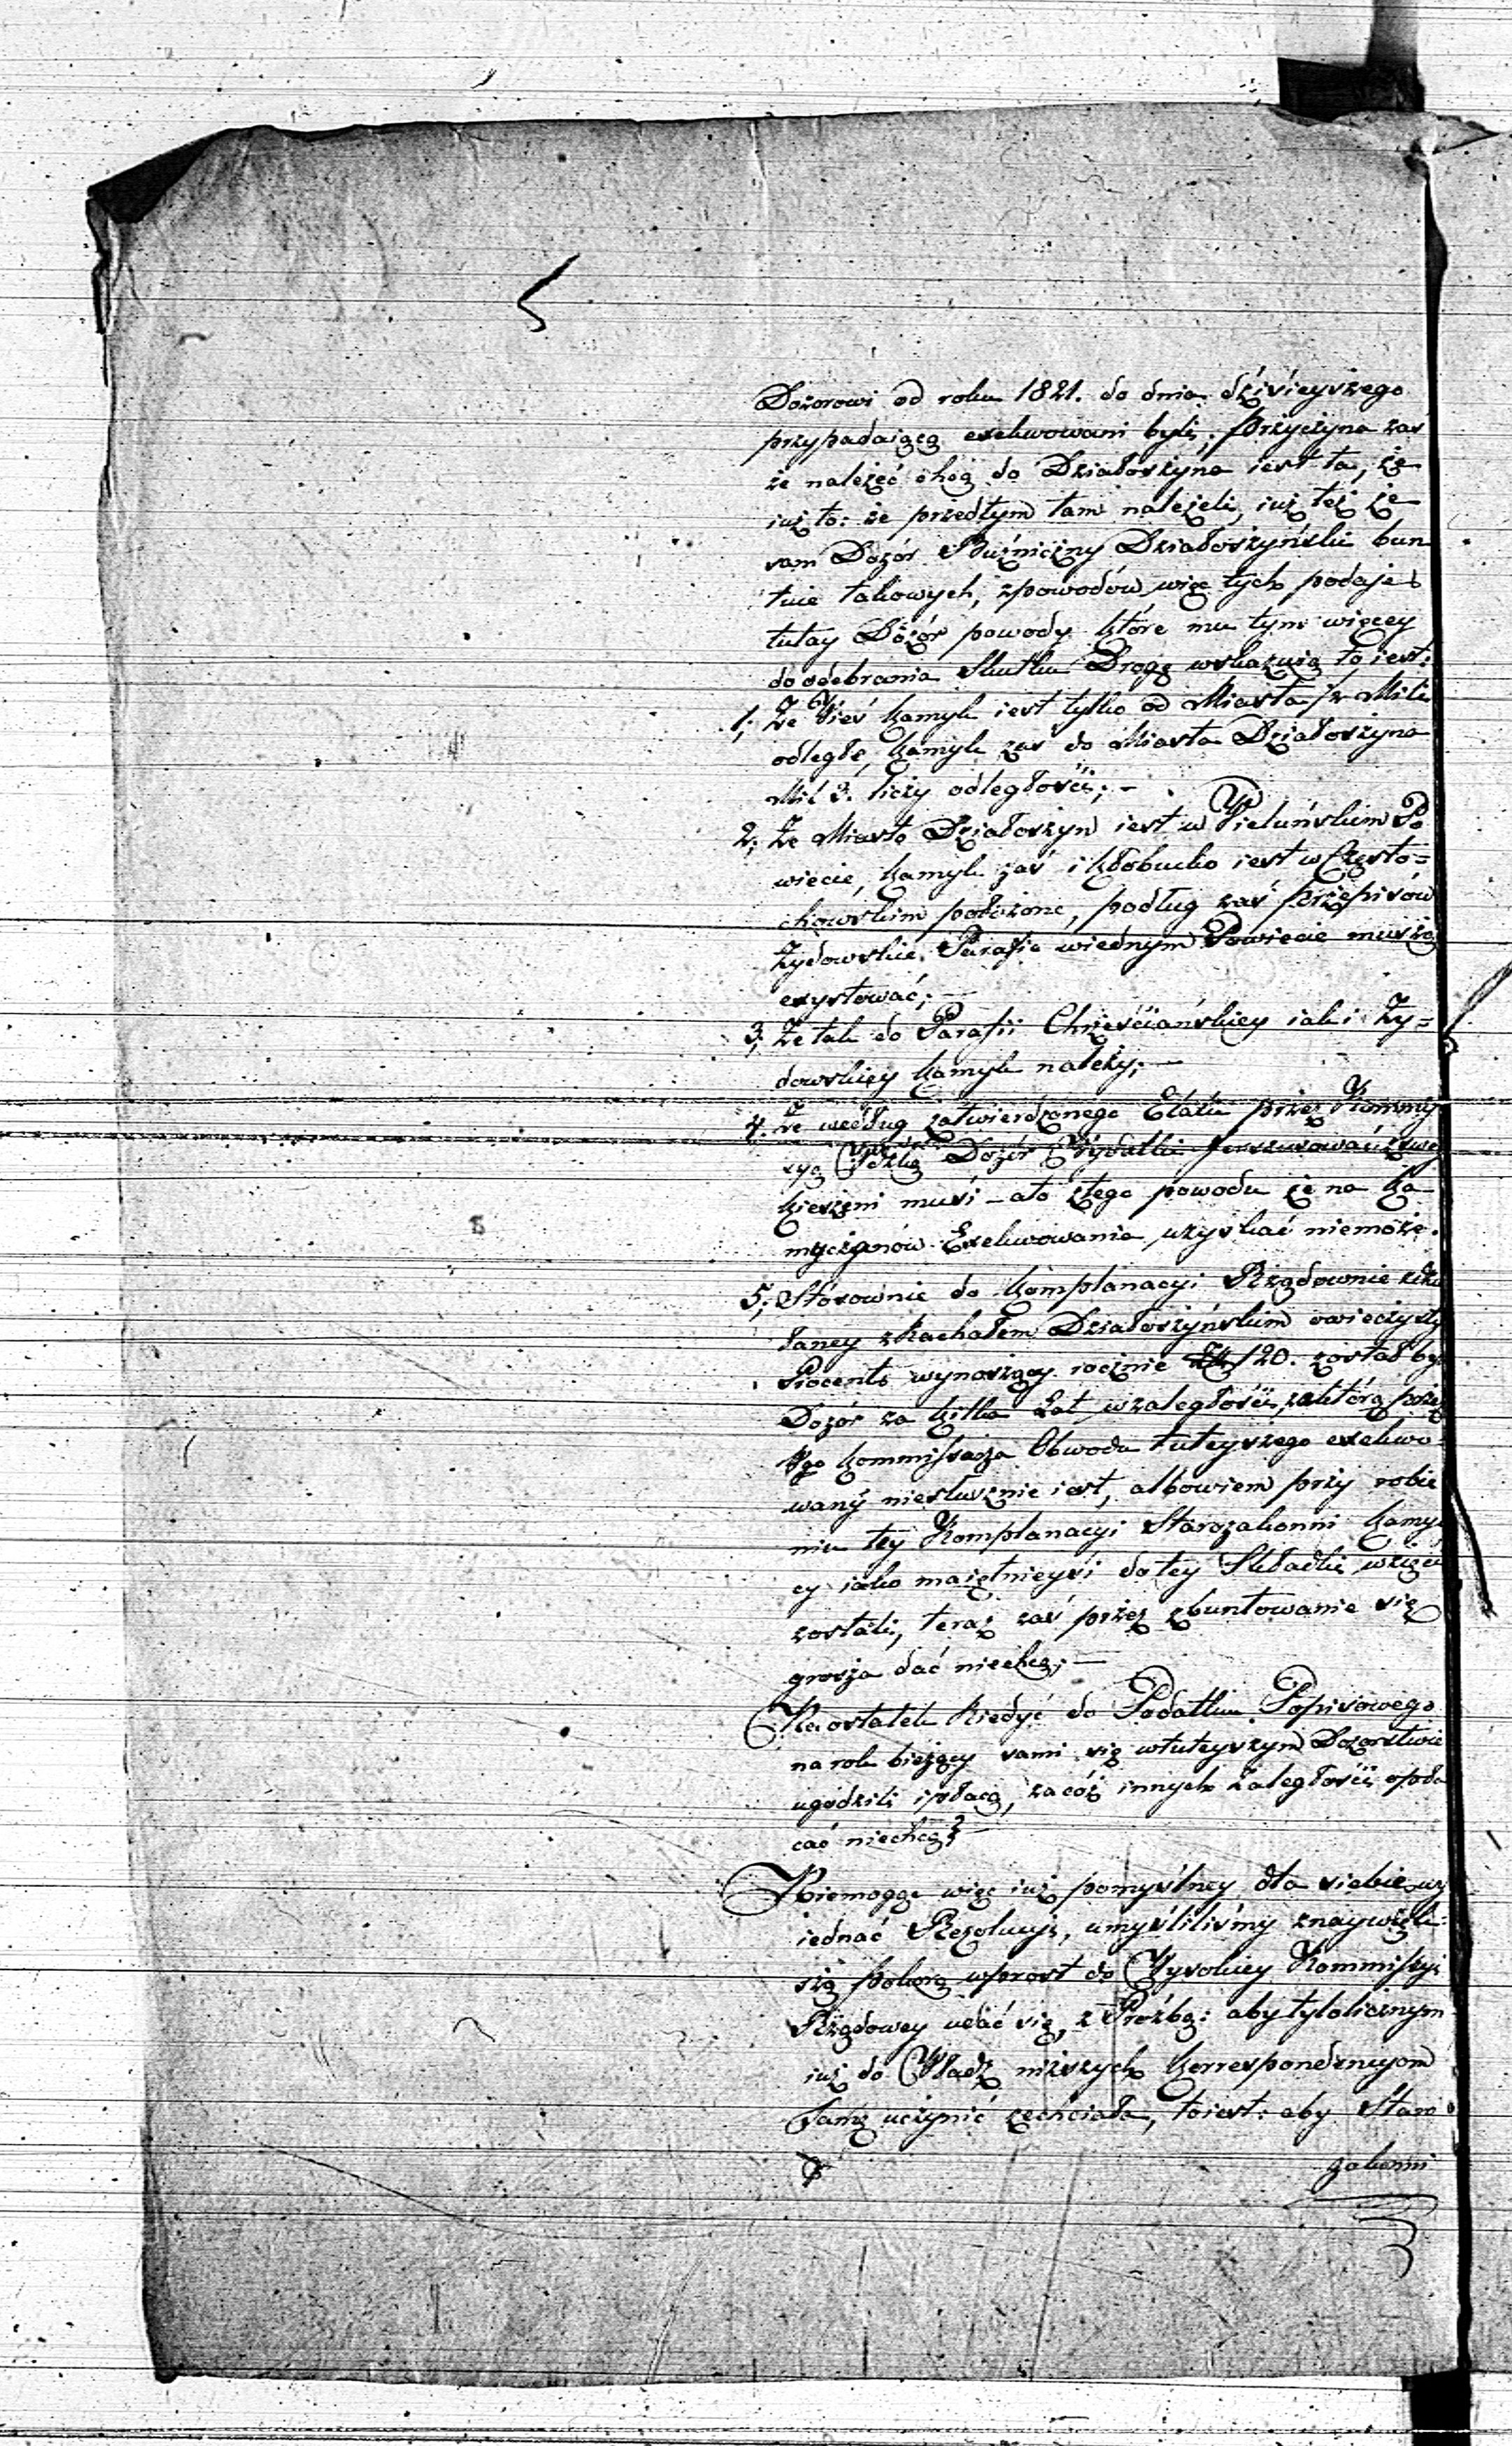 Dozorowi od roku 1821. do dnia dzisieyszego
przypadaiącą exekwowani byli; Przyczyna zaś
że należeć chcą do Działoszyna iest ta, że
iuż to: że przedtym tam należeli, iuż też że
sam Dozór Bużniczny Działoszyński bun
tuie takowych, zpowodów więc tych podaje
tutay Dozór powody które mu tym więcey
do odebrania Skutku Drogę wskazuią to iest:
1, Że Wieś Kamyk iest tylko od Miasta ½ Mili
odległe, Kamyk zaś do Miasta Działoszyna
Mil 3. liczy odległości; –
2, Że Miasto Działoszyn iest w Wieluńskim Po
wiecie, Kamyk zaś i Kłobucko iest w Często=
chowskim położone, podług zaś przepisów
Żydowskie Parafie wiednym Powiecie muszą
exystować; –
3, Że tak do Parafii Chrześciańskiey iak i Ży=
dowskiey Kamyk należy; –
4. Że według zatwierdzonego Etatu przez Kommis
syą Dozór Wydatki zswey
kieszeni musi – ato ztego powodu że na Ka
myczanów Exekwowania uzyskać niemoże.
5, Stosownie do Komplanacyi Rządownie zdzia
łaney z Kachałem Działoszyńskim owieczysty
Procent wynoszący rocznie 120. został by
Dozór za kilka Lat wzaległości, zaktórą przez
Wgo Kommissarza Obwodu tuteyszego exekwo
wany niesłusznie iest, albowiem przy robie
niu tey Komplanacyi Starozakonni Kamy
cy iako maiętnieysi do tey Składki wzięci
zostali, teraz zaś przez zbuntowanie się
grosza dać niechcą; –
Naostatek kiedyć do Podatku Popisowego
na rok bieżący sami się wtuteyszym Dozorstwie
ugodzili i płacą, zacóż innych Zaległości opła
cać niechcą? –
Niemogąc więc iuż pomyślney dla siebie wy
iednać Rezolucyi, umyśliliśmy znaywięk=
szą pokorą wprost do Wysokiey Kommissyi
Rządowey udać się, z Prożbą: aby tylolicznym
iuż do Władz niższych Korrespondencyom
Tamę uczynić zechciała, toiest: aby Staro
zakonni